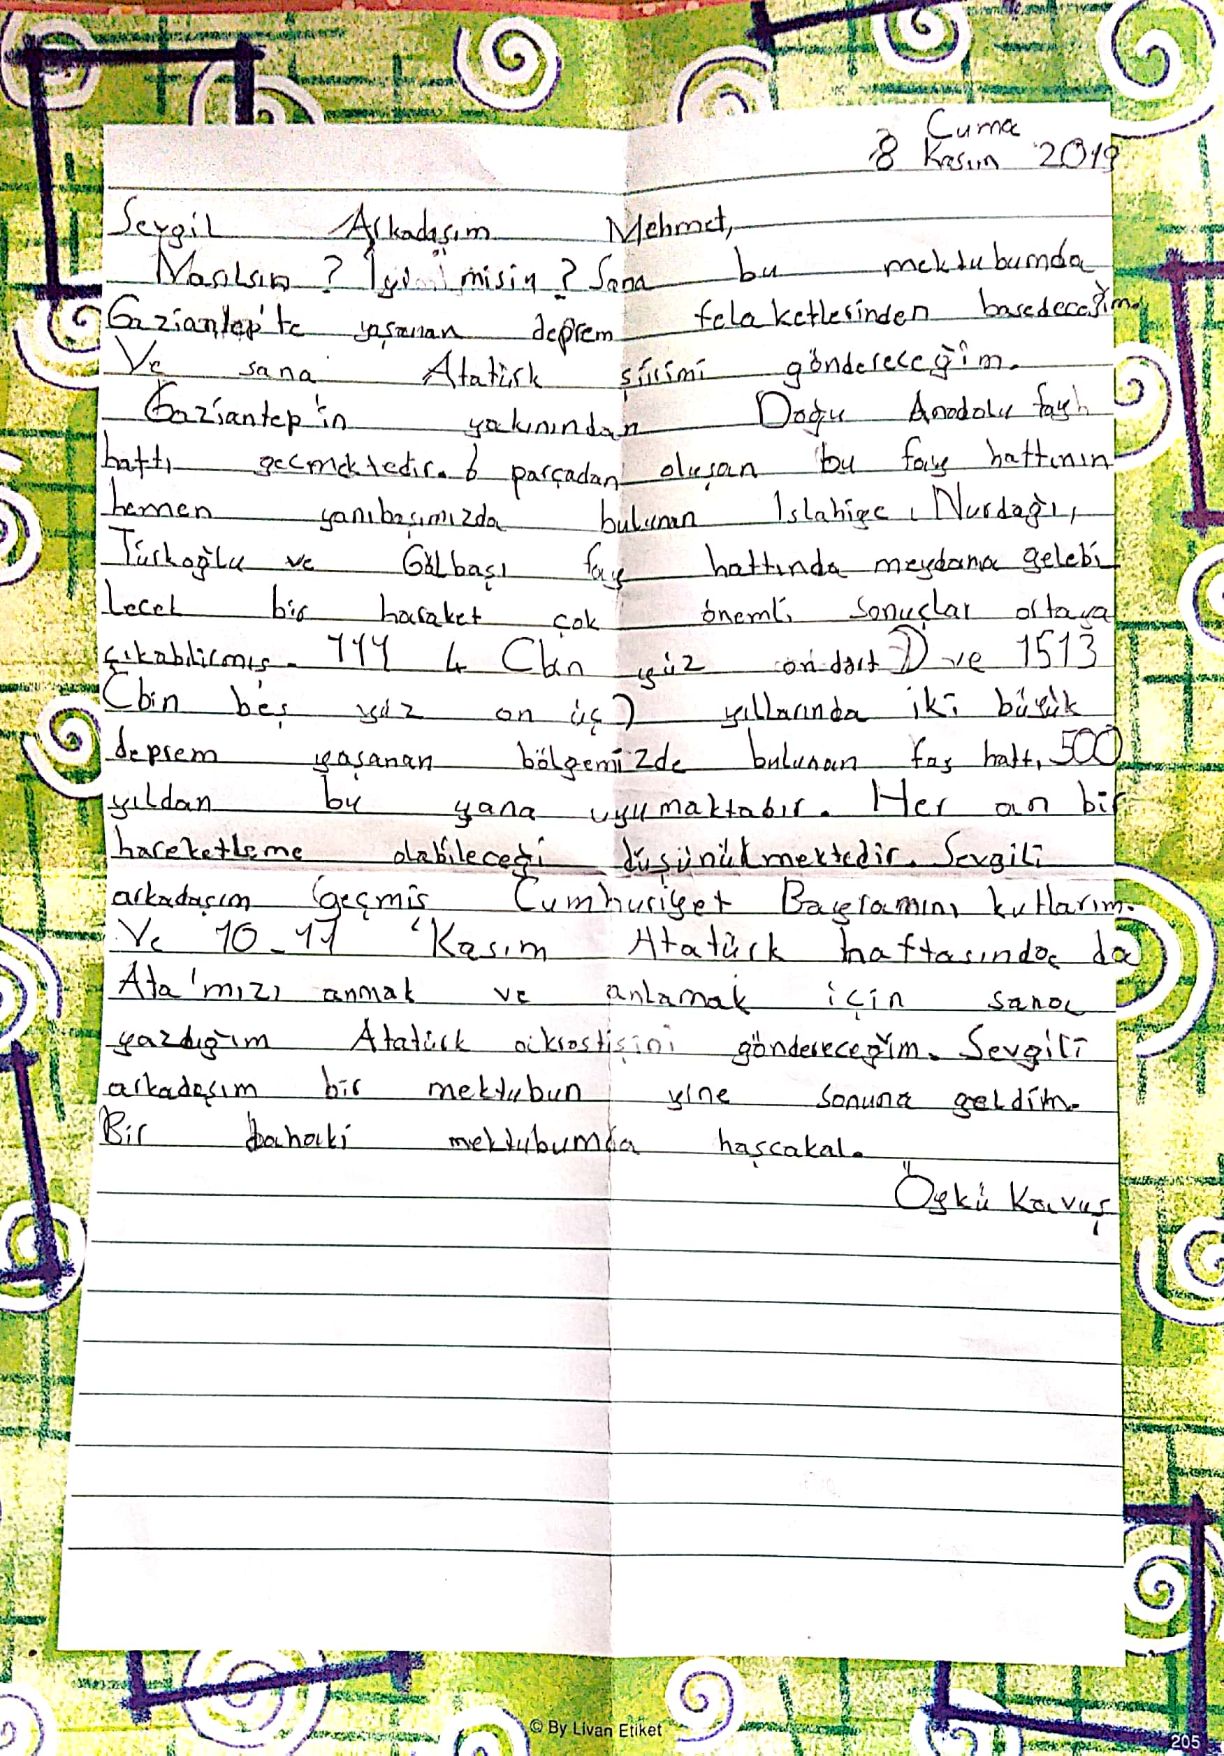 Cuma
8 Kasım 2019
Sevgil Arkadaşım Mehmet,
Nasılsın? İyi misin? Sana bu mektubumda
Gaziantep'te yaşanan deprem felaketlerinden basedeceğim.
Ve sana Atatürk şiirimi göndereceğim.
Gaziantep'in yakınından Doğu Anadolu fayh
hattı geçmektedir. 6 parçadan oluşan bu fay hattının
hemen yanıbaşımızda bulunan Islahiye, Nurdağı,
Türkoğlu ve Gölbaşı fay hattında meydana gelebi
lecel bir haraket çok önemli sonuçlar ortaya
çıkabilirmiş. 111 4 (bin yüz on dört) ve 1513
(bin beş yüz on üç) yıllarında iki büyük
deprem yaşanan bölgemizde bulunan fay hattı 500
yıldan bu yana uyumaktabır. Her an bir
hareketleme olabileceği düşünülmektedir. Sevgili
arkadaşım Geçmiş Cumhuriyet Bayramını kutlarım.
Ve 10-17 Kasım Atatürk haftasında da
Ata'mızı anmak ve anlamak için sana
yazdığım Atatürk akrostişini göndereceğim. Sevgili
arkadaşım bir mektubun yine sonuna geldim.
Bir dahaki mektubumda haşcakal.
Öykü Kavuş
© By Livan Etiket
205